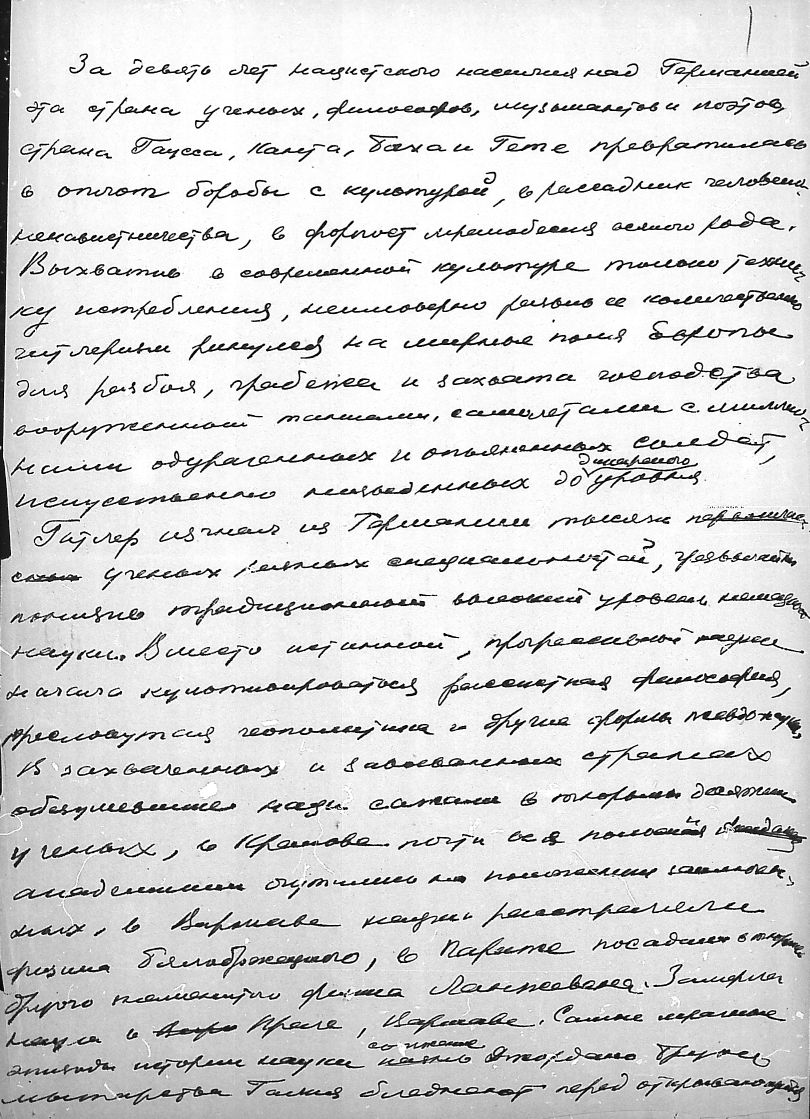 За девять лет нацистского насилия над Германией
эта страна ученых, философов, музыкантов и поэтов,
страна Гаусса, Канта, Баха и Гете превратилась
в оплот борьбы с культурой, в рассадник человеко-
ненавистничества, в форпост мракобесия всякого рода.
Выхватив в современной культуре только техни-
ку истребления, неимоверно развив ее количественно
гитлеризм ринулся на мирные поля Европы
для разбоя, грабежа и захвата господства
вооруженный танками, самолетами с миллио-
нами одураченных и опьяненных солдат,
искусственно низведенных до дикарского уровня.
Гитлер изгнал из Германии тысячи
ученых разных специальностей, чрезвычайно
понизив традиционный высокий уровень немецкой
науки. Вместо истинной, прогрессивной науки
начала культивироваться расистская философия,
пресловутая геополитика и другие формы псевдонауки.
В захваченных и завоеванных странах
обезумевшие наци сажали в тюрьмы десятки
ученых, в Кракове почти вся польская
академия очутилась на положении заключен-
ных, в Варшаве наци расстреляли
физика Бялобржеского, в Париже посадили в тюрьму
другого знаменитого физика Ланжевена. Замерла
наука в Праге, Варшаве. Самые мрачные
эпизоды истории науки сожжение Джордано Бруно,
мытарства Галилея бледнеют перед открывающейся